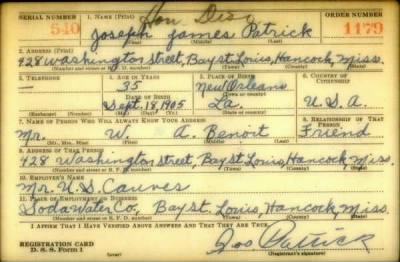 SERIAL NUMBER 1. NAME (Print) Hon Disc ORDER NUMBER
540 Joseph James Patrick 1179
(First) (Middle) (Last)
2. ADDRESS (Print)
428 Washington Street, Bay St. Louis, Hancock, Miss.
(Number and street or R. F. D. number) (Town) (County) (State)
3. TELEPHONE 4. AGE IN YEARS 5. PLACE OF BIRTH 6. COUNTRY OF CITIZENSHIP
— 35 New Orleans
(Town or county)
DATE OF BIRTH
Sept. 18, 1905 La. U. S. A.
(Exchange) (Number) (Mo.) (Day) (Yr.) (State or country)
7. NAME OF PERSON WHO WILL ALWAYS KNOW YOUR ADDRESS 8. RELATIONSHIP OF THAT PERSON
Mr. W. A. Benoit Friend
(Mr., Mrs., Miss) (First) (Middle) (Last)
9. ADDRESS OF THAT PERSON
428 Washington Street, Bay St. Louis, Hancock, Miss.
(Number and street or R. F. D. number) (Town) (County) (State)
10. EMPLOYER'S NAME
Mr.
11. PLACE OF EMPLOYMENT OR BUSINESS
Soda Water Co., Bay St. Louis, Hancock, Miss.
(Number and street or R. F. D. number) (Town) (County) (State)
I AFFIRM THAT I HAVE VERIFIED ABOVE ANSWERS AND THAT THEY ARE TRUE.
REGISTRATION CARD
D. S. S. Form 1 Jos Patrick
(Registrant's signature)